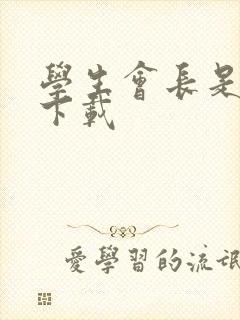 學生會長是
下載
愛學習的流氓